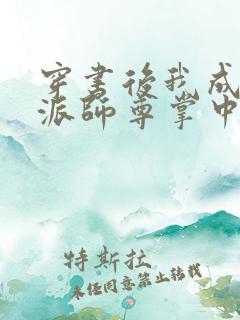 穿书后我成
派師尊掌中
特斯拉
未经同意禁止转载